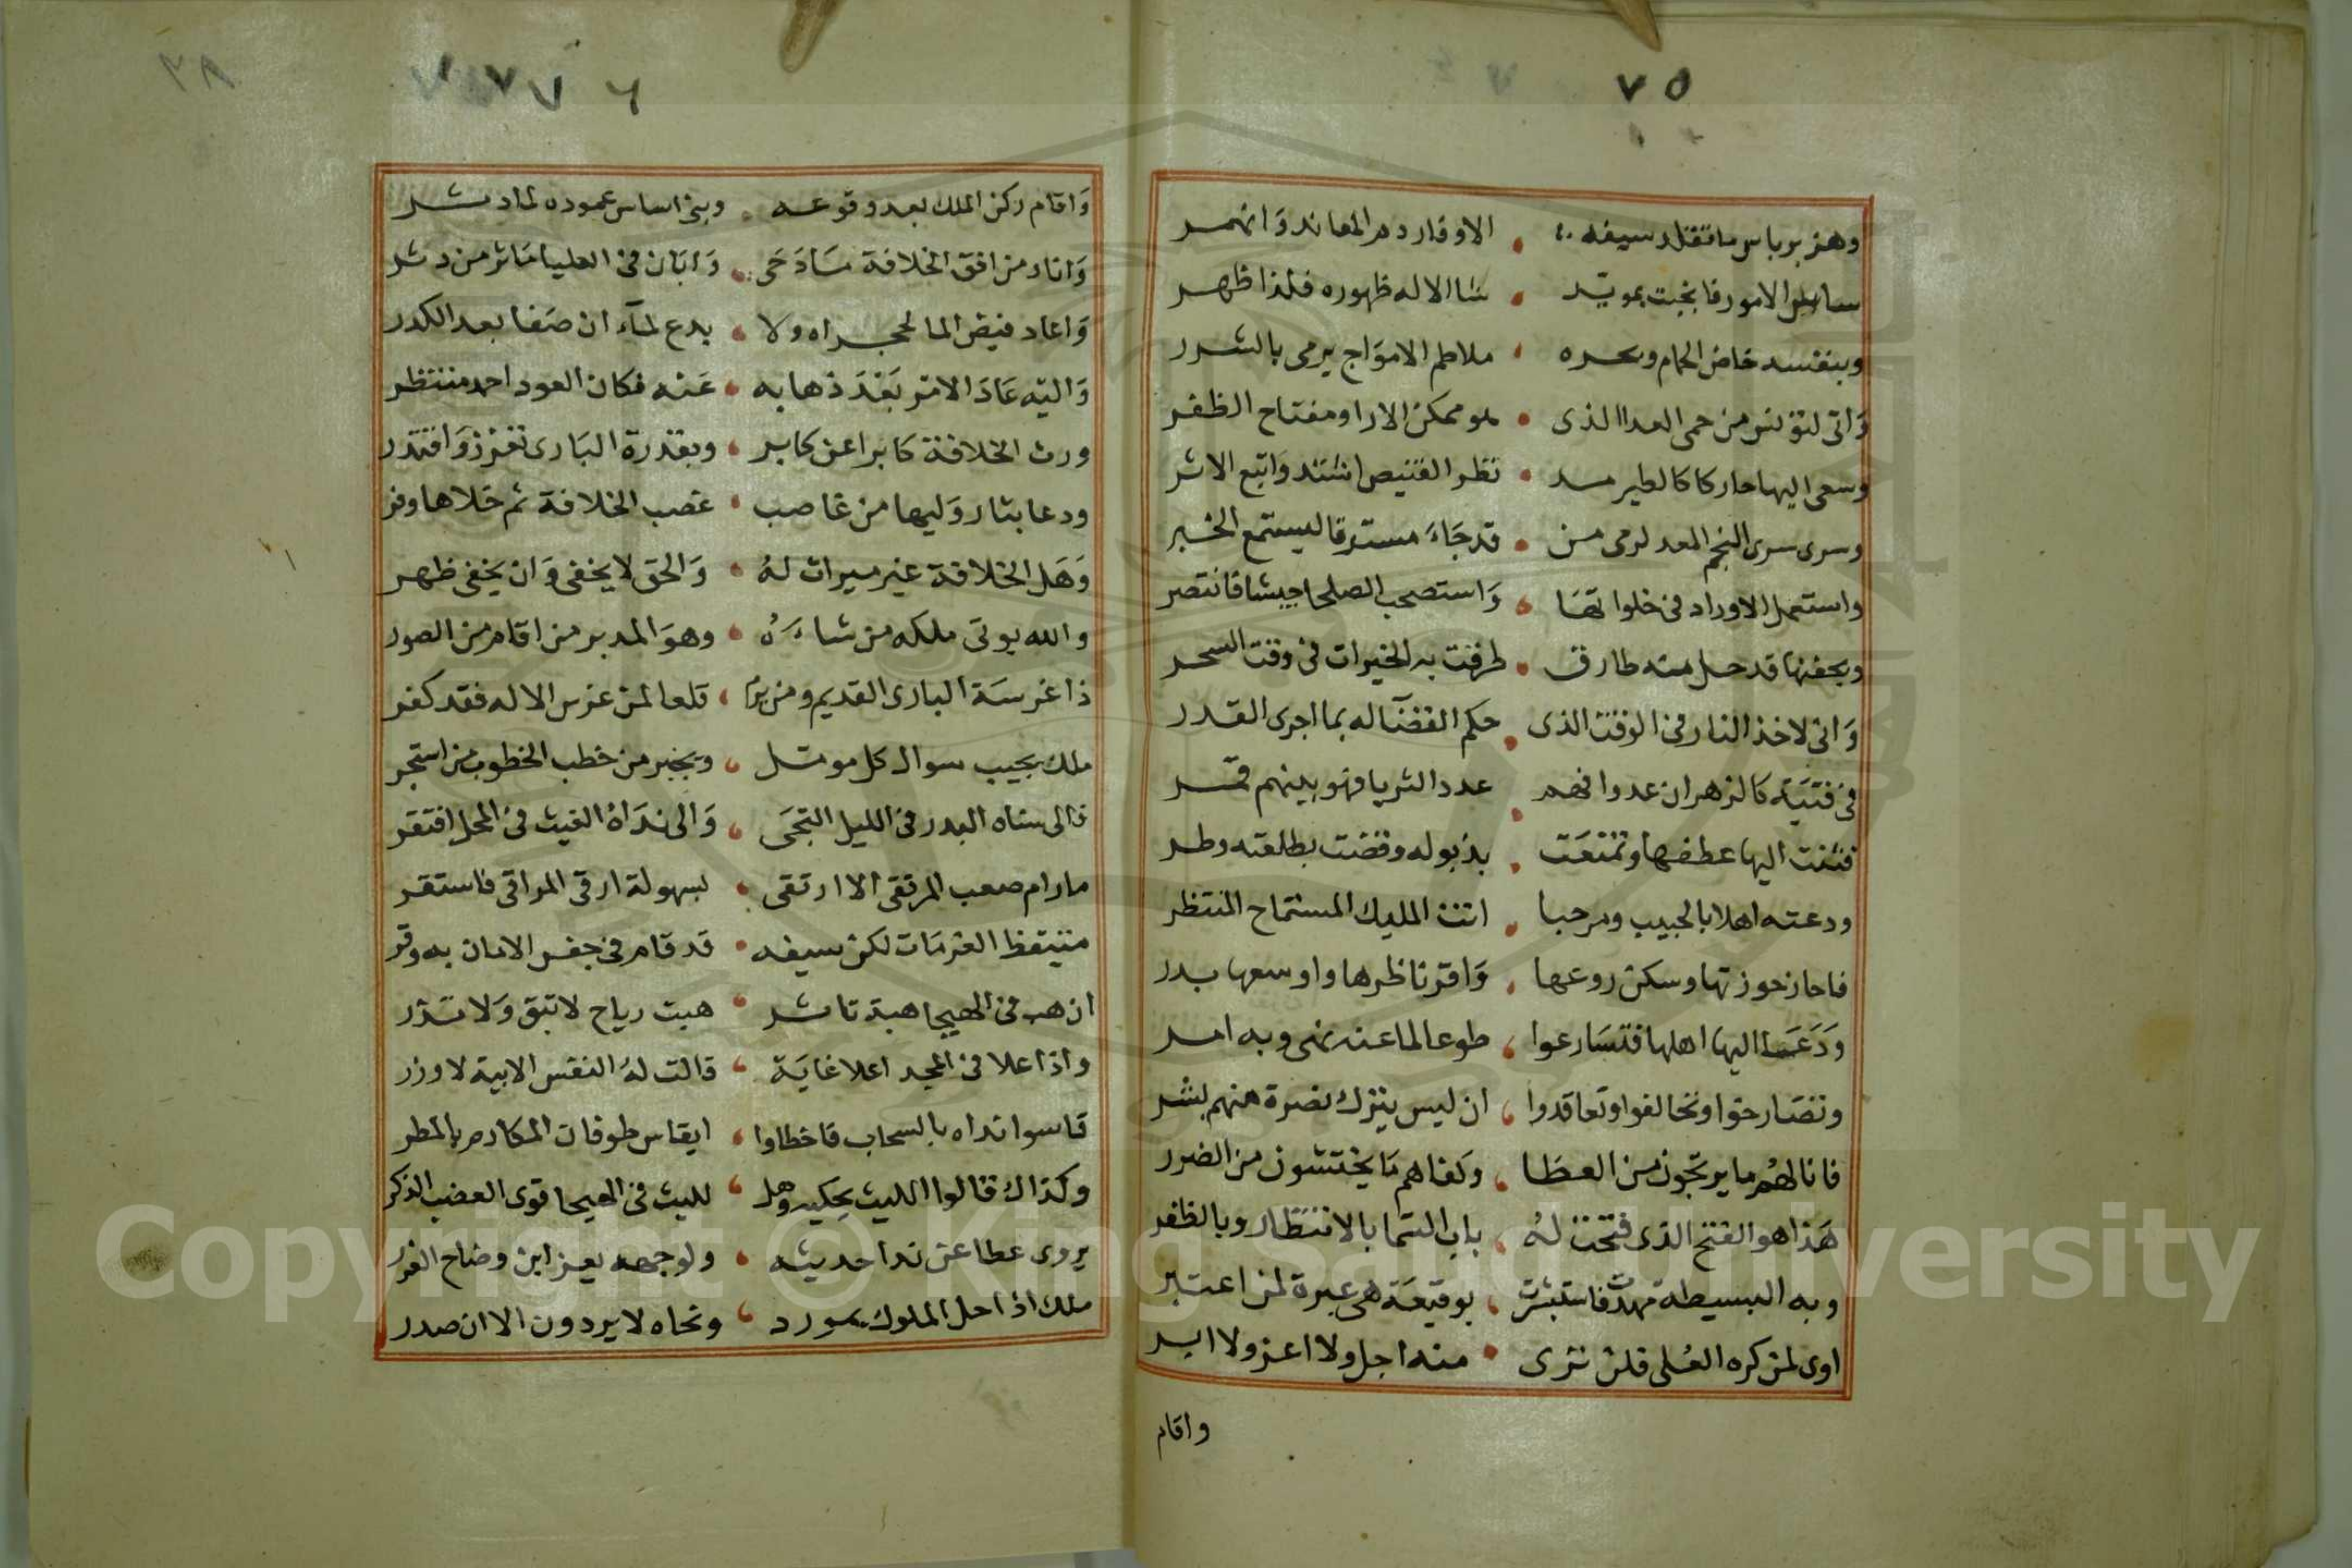 ٧٥
وهزبر باس ما تقلد سيفه الا وقار دم المعاند وانهمر
ساس الامور فانجبت بمويد شا الاله ظهوره فلذا ظهر
وبنفسه خاض الحمام وبحره ملاطم الامواج يرمى بالشرر
واتى لتونس من حمى العدا الذى هو ممكن الارا ومفتاح الظفر
وسعى اليها حاركا كالطير مذ نظر القنيص اشتد واتبع الاثر
وسرى سرى النجم المعد لرمى من قد جاء مسترقا ليستمع الخبر
واستعمل الاوراد فى خلواتها واستصحب الصلحا جيشا فانتصر
وبجفنها قد حل منه طارق طرقت به الخيرات فى وقت السحر
وانى لاخذ الثار فى الوقت الذى حكم القضآ له بما اجرى القدر
فى فتية كالزهر ان عدوا فهم عدد الثريا فهو بينهم قمر
فثنت اليها عطفها وتمتعت بذبوله وقضت بطلعته وطر
ودعته اهلا بالحبيب ومرحبا انت المليك المستماح المنتظر
فاحاز حوزتها وسكن روعها واقر ناظرها واوسعها بدر
ودعا اليها اهلها فتسارعوا طوعا لما عنه نهى وبه امر
وتصارحوا وتحالفوا وتعاقدوا ان ليس يترك نصرة منهم بشر
فانالهم ما يرتجون من العطا وكفاهم ما يختشون من الضرر
هذا هو الفتح الذى فتحت له باب السما بالانتظار وبالظفر
وبه البسيطة مهدت فاستبشرت بوقيعة هى عبرة لمن اعتبر
اوى لمن كره العلى فلن نرى منه اجل ولا اعز ولا ابر
واقام
٧٦
واقام ركن الملك بعد وقوعه وبنى اساس عموده لما دثر
وانار من افق الخلافة ما دجى وابان فى العليا ماثر من دثر
واعاد فيض الما لمجراه ولا بدع لمآء ان صفا بعد الكدر
واليه عاد الامر بعد ذهابه عنه فكان العود احمد منتظر
ورث الخلافة كابرا عن كابر وبقدرة البارى تعزز واقتدر
ودعا بثار وليها من غاصب غصب الخلافة ثم خلاها وفر
وهل الخلافة غير ميراث له والحق لا يخفى وان يخفى ظهر
والله يوتى ملكه من شاءه وهو المدبر من اقام من الصور
ذا غرسة البارى القديم ومن يرم قلعا لمن غرس الاله فقد كفر
ملك يجيب سوال كل مومل ويجير من خطب الخطوب من استجر
فالى سناه البدر فى الليل التجى والى نداه الغيث فى المحل افتقر
مارام صعب المرتقى الا ارتقى بسهولة ارقى المراقى فاستقر
متيقظ العزمات لكن سيفه قد قام فى جفن الامان به وقر
ان هب فى الهيجا هبة ثائر هبت رياح لا تبق ولا تذر
واذا علا فى المجد اعلا غاية قالت له النفس الابية لا وزر
قاسوا نداه بالسحاب فاخطاوا ايقاس طوفان المكارم بالمطر
وكذاك قالوا الليث يحكيه وهل لليث فى الهيجا قوى العضب الذكر
يروى عطا عن ندا حديثه ولوجهه يعز ابن وضاح الغرر
ملك اذا حل الملوك بمورد ونحاه لا يردون الا ان صدر